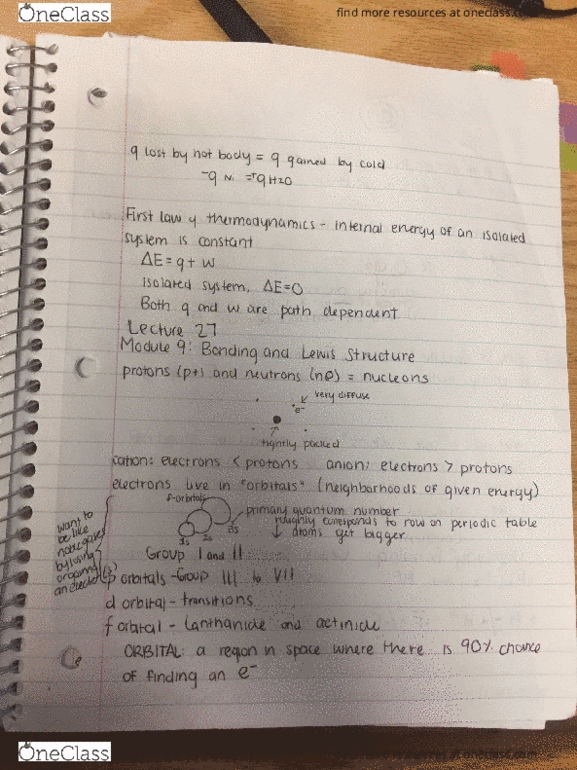 OneClass
find more resources at oneclass.com
q lost by hot body = q gained by cold
-q Ni = +q H2O
First law of thermodynamics - internal energy of an isolated
system is constant
ΔE = q + w
Isolated system, ΔE=0
Both q and w are path dependent
Lecture 27
Module 9: Bonding and Lewis Structure
protons (p+) and neutrons (n⊖) = nucleons
very diffuse
e-
tightly packed
cation: electrons < protons anion: electrons > protons
electrons live in "orbitals" (neighborhoods of given energy)
orbitals
primary quantum number
roughly corresponds to row on periodic table
↓ atoms get bigger
1s 2s 3s
want to
be like
noble gases
by losing
or gaining
an electron
Group I and II
p orbitals - Group III to VII
d orbital - transitions
f orbital - Lanthanide and actinide
ORBITAL: a region in space where there is 90% chance
of finding an e-
OneClass
find more resources at oneclass.com